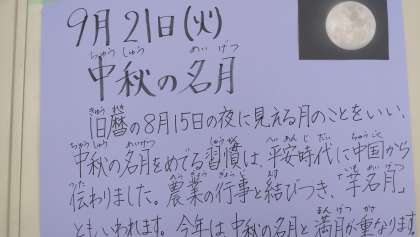 9月21日(火)
ちゅうしゅう めいげつ
中秋の名月
きゅうれき
旧暦の8月15日の夜に見える月のことをいい、
ちゅうしゅう めいげつ しゅうかん へいあんじだい ちゅうごく
中秋の名月をめでる習慣は、平安時代に中国から
つた のうぎょう ぎょうじ むす いもめいげつ
伝わりました。農業の行事と結びつき、「芋名月」
まんげつ かさ
ともいわれます。今年は中秋の名月と満月が重なります